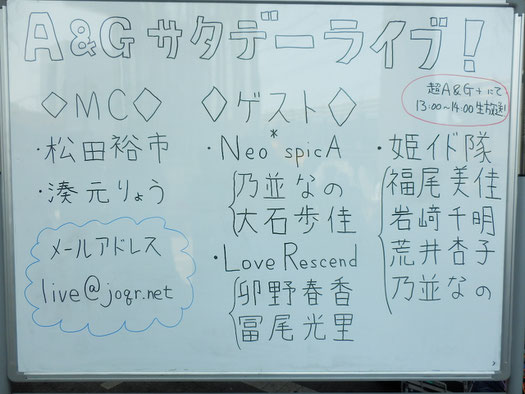 A&Gサタデーライブ!
超A&G+にて
13:00~14:00生放送!
◇MC◇
・松田裕市
・湊元りょう
メールアドレス
live@joqr.net
◇ゲスト◇
・Neo*spicA
乃並なの
大石歩佳
・Love Rescend
卯野春香
冨尾光里
・姫イド隊
福尾美佳
岩﨑千明
荒井杏子
乃並なの